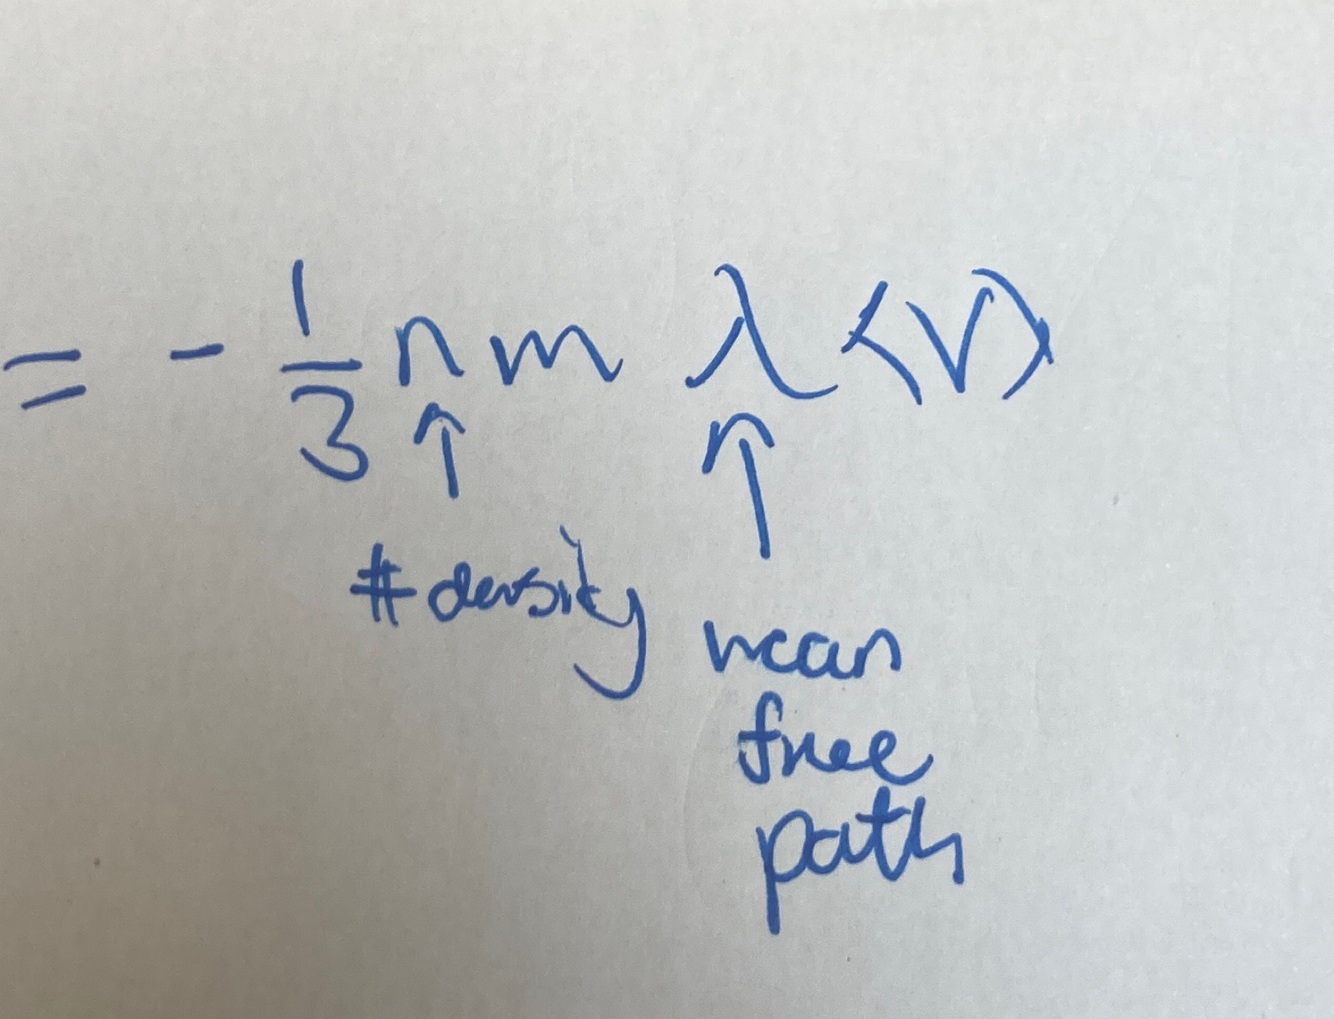 = - 1/3 n m λ <v>
↑ ↑
# density
mean
free
path